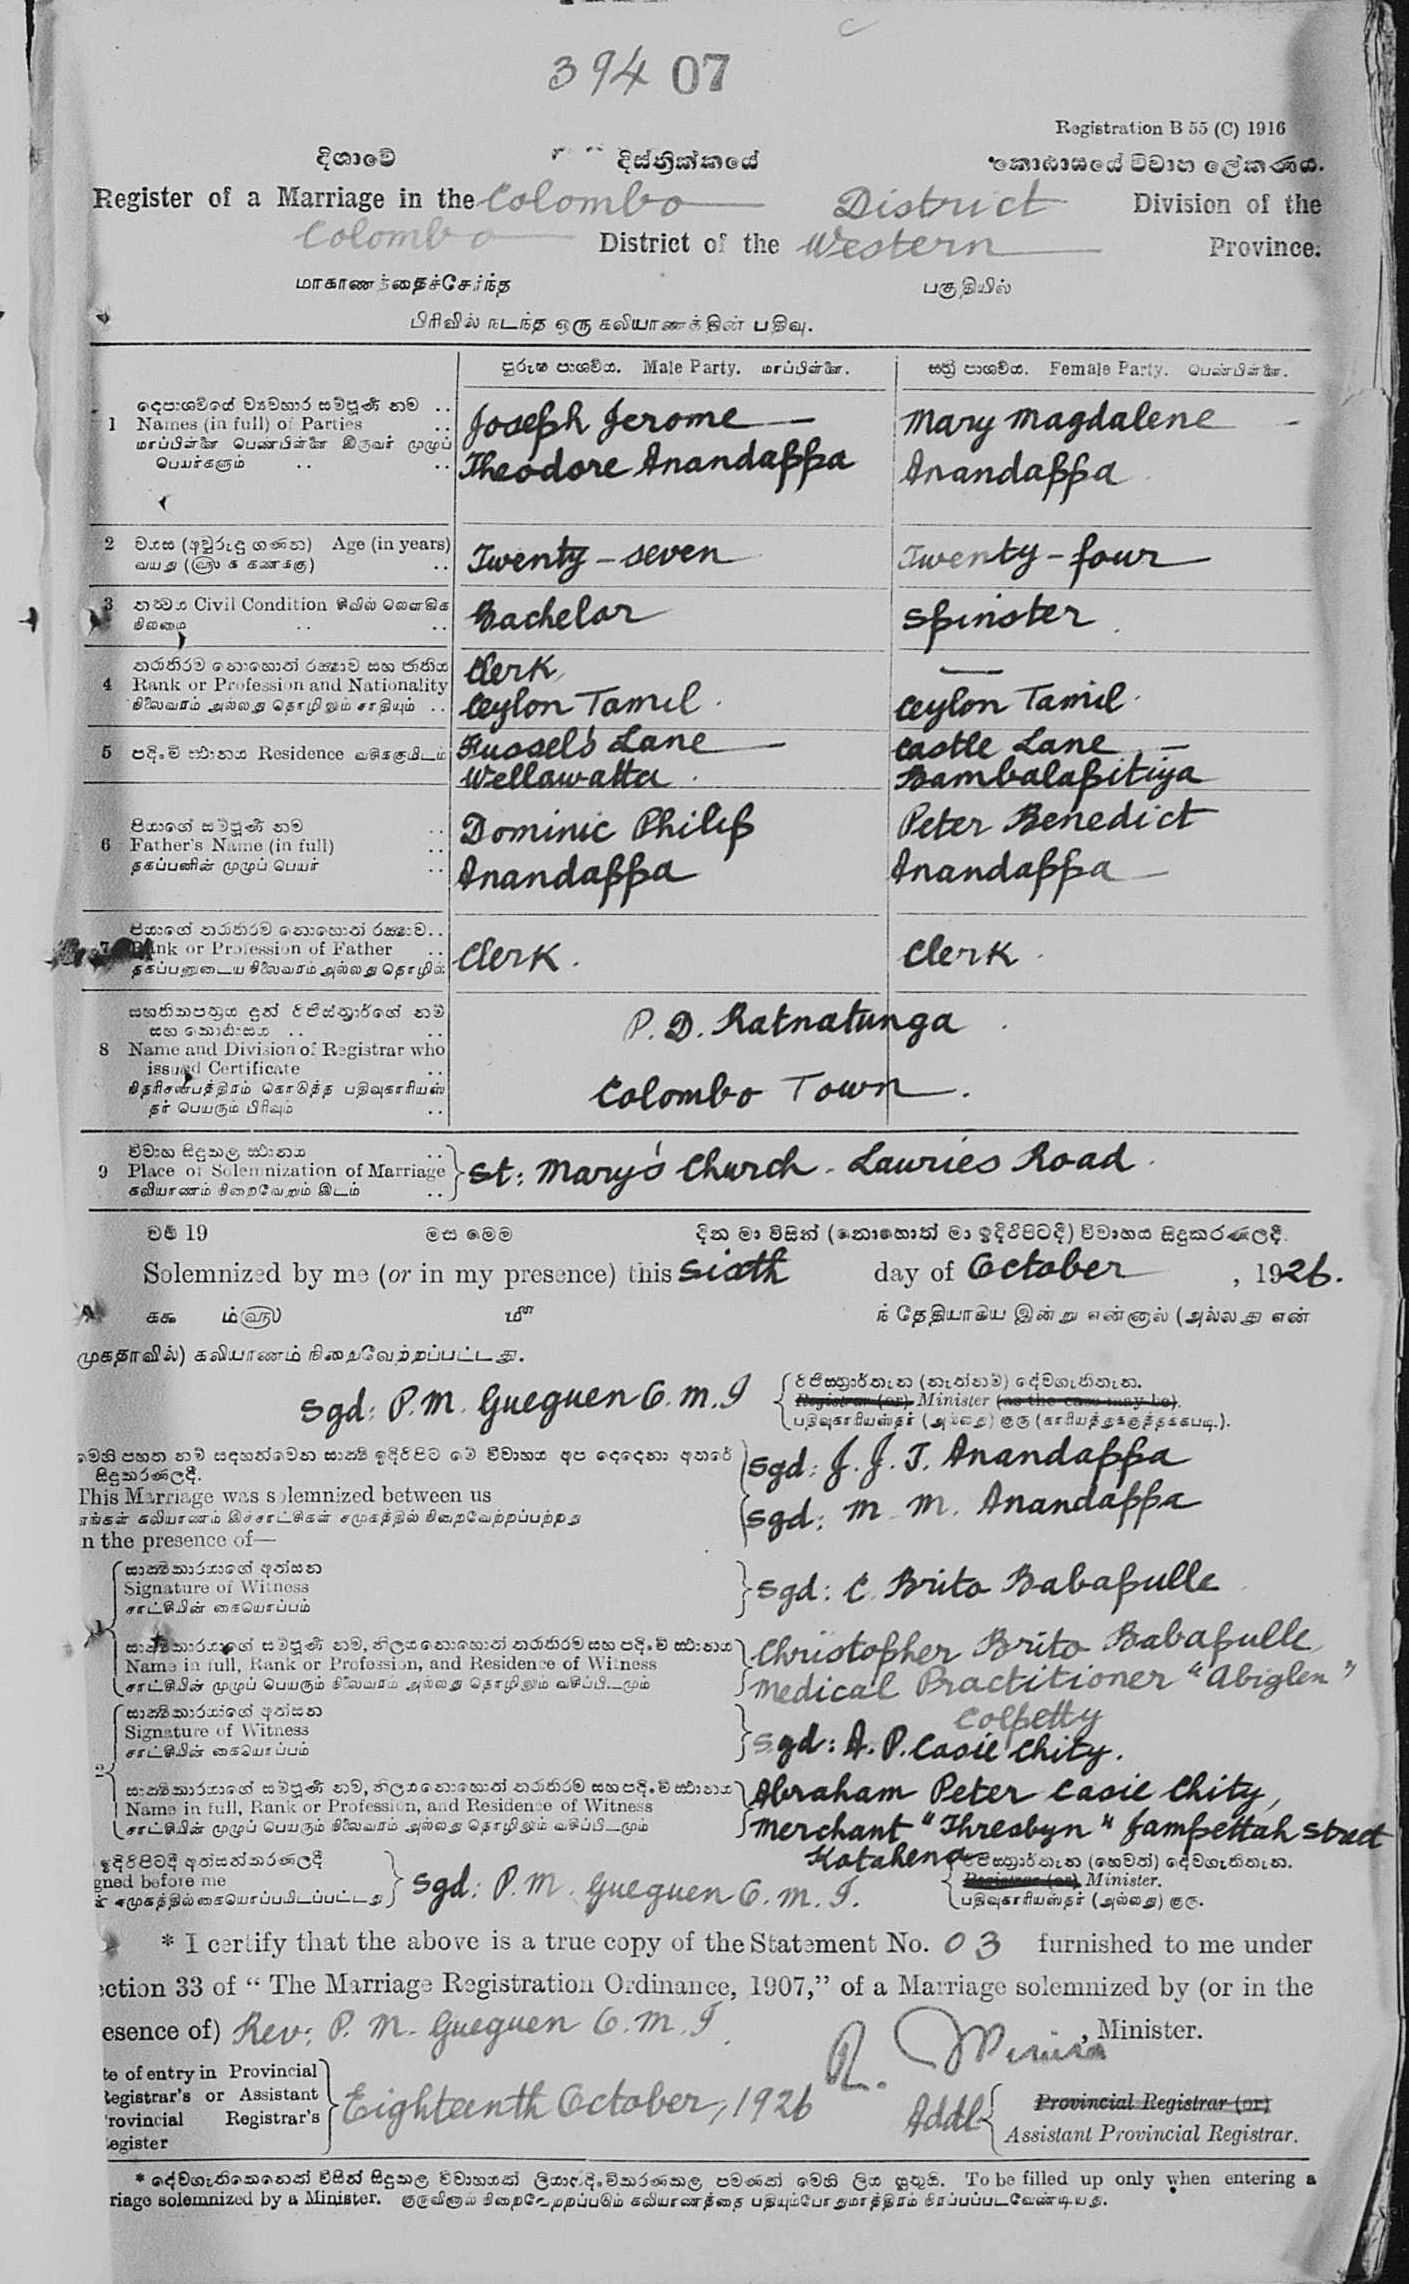 394 07
Registration B 55 (C) 1916
දිශාවේ දිස්ත්‍රික්කයේ කොට්ඨාසයේ විවාහ ලේකණය.
Register of a Marriage in the Colombo District Division of the
Colombo District of the Western Province.
மாகாணத்தைச்சேர்ந்த பகுதியில்
பிரிவில் நடந்த ஒரு கலியாணத்தின் பதிவு.
පුරුෂ පාශ්වීය. Male Party. மாப்பிள்ளை. ස්ත්‍රී පාශ්වීය. Female Party. பெண்பிள்ளை.
දෙපාශ්වයේ ව්‍යවහාර සම්පූණී නම ..
1 Names (in full) of Parties .. Joseph Jerome Mary Magdalene
மாப்பிள்ளை பெண்பிள்ளை இருவர் முழுப்
பெயர்களும் .. .. Theodore Anandappa Anandappa
2 වයස (අවුරුදු ගණන) Age (in years) Twenty-seven Twenty-four
வயது (ஹ௵க் கணக்கு) ..
3 තත්වය Civil Condition சிவில் லௌகிக Bachelor Spinster
நிலமை .. ..
තරාතිරම නොහොත් රක්ෂාව සහ ජාතිය Clerk, —
4 Rank or Profession and Nationality
நிலைவரம் அல்லது தொழிலும் சாதியும் .. Ceylon Tamil Ceylon Tamil
5 පදිංචි ස්ථානය Residence வசிக்குமிடம் Fussel's Lane Castle Lane
Wellawatta Bambalapitiya
පියාගේ සම්පූණී නම ..
6 Father's Name (in full) .. Dominic Philip Peter Benedict
தகப்பனின் முழுப் பெயர் .. Anandappa Anandappa
පියාගේ තරාතිරම නොහොත් රක්ෂාව..
7 Rank or Profession of Father .. Clerk. Clerk.
தகப்பனுடைய நிலைவரம் அல்லது தொழில்
සහතිකපත්‍රය දුන් රෙජිස්ත්‍රාර්ගේ නම
සහ කොට්ඨාසය .. .. P. D. Ratnatunga
8 Name and Division of Registrar who
issued Certificate ..
அத்தாட்சிப்பத்திரம் கொடுத்த பதிவுகாரியஸ் Colombo Town.
தர் பெயரும் பிரிவும் ..
විවාහ සිදුකල ස්ථානය ..
9 Place of Solemnization of Marriage St: Mary's Church - Lauries Road.
கலியாணம் நிறைவேறும் இடம் ..
වර්ෂ 19 මස මෙම දින මා විසින් (නොහොත් මා ඉදිරිපිටදී) විවාහය සිදුකරණලදී.
Solemnized by me (or in my presence) this Sixth day of October , 1926.
௧௯ ம்௵ மீ௴ ந் தேதியாகிய இன்று என்னால் (அல்லது என்
முகதாவில்) கலியாணம் நிறைவேற்றப்பட்டது.
Sgd: P. M. Gueguen O. M. I
රෙජිස්ත්‍රාර්තැන (නැත්නම්) දේවගැතිතැන.
Registrar (or) Minister (as the case may be).
பதிவுகாரியஸ்தர் (அல்லது) குரு (காரியத்துக்குத்தக்கபடி.).
මෙහි පහත නම් සඳහන්වෙන සාක්‍ෂි ඉදිරිපිට මේ විවාහය අප දෙදෙනා අතරේ
සිදුකරණලදී. Sgd: J. J. T. Anandappa
This Marriage was solemnized between us
எங்கள் கலியாணம் இச்சாட்சிகள் சமுகத்தில் நிறைவேற்றப்பற்றது Sgd: M. M. Anandappa
n the presence of—
සාක්‍ෂිකාරයාගේ අත්සන
Signature of Witness Sgd: C. Brito Babapulle
சாட்சியின் கையொப்பம்
1
සාක්‍ෂිකාරයාගේ සම්පූණී නම, නිලය නොහොත් තරාතිරම සහ පදිංචි ස්ථානය Christopher Brito Babapulle
Name in full, Rank or Profession, and Residence of Witness
சாட்சியின் முழுப் பெயரும் நிலைவரம் அல்லது தொழிலும் வசிப்பிடமும் Medical Practitioner "Abiglen"
Colpetty
සාක්‍ෂිකාරයාගේ අත්සන
Signature of Witness Sgd: A. P. Casie Chity.
சாட்சியின் கையொப்பம்
2
සාක්‍ෂිකාරයාගේ සම්පූණී නම, නිලය නොහොත් තරාතිරම සහ පදිංචි ස්ථානය Abraham Peter Casie Chity,
Name in full, Rank or Profession, and Residence of Witness
சாட்சியின் முழுப் பெயரும் நிலைவரம் அல்லது தொழிலும் வசிப்பிடமும் Merchant "Thresbyn" Jampettah Street
Kotahena
ඉදිරිපිටදී අත්සන්කරණලදී රෙජිස්ත්‍රාර්තැන (හෙවත්) දේවගැතිතැන.
gned before me Sgd: P. M. Gueguen O. M. I. Registrar (or) Minister.
சமுகத்தில் கையொப்பமிடப்பட்டது பதிவுகாரியஸ்தர் (அல்லது) குரு.
* I certify that the above is a true copy of the Statement No. 03 furnished to me under
ection 33 of “ The Marriage Registration Ordinance, 1907,” of a Marriage solemnized by (or in the
esence of) Rev: P. M. Gueguen O. M. I , Minister.
te of entry in Provincial
Registrar's or Assistant Eighteenth October, 1926 Addl Provincial Registrar (or)
rovincial Registrar's Assistant Provincial Registrar.
egister
* දේවගැතිකෙනෙක් විසින් සිදුකල විවාහයක් ලියාපදිංචිකරණකල පමණක් මෙහි ලිය යුතුයි. To be filled up only when entering a
riage solemnized by a Minister. குருவினால் நிறைவேற்றப்படும் கலியாணத்தை பதியும்போதுமாத்திரம் நிரப்பப்படவேண்டியது.